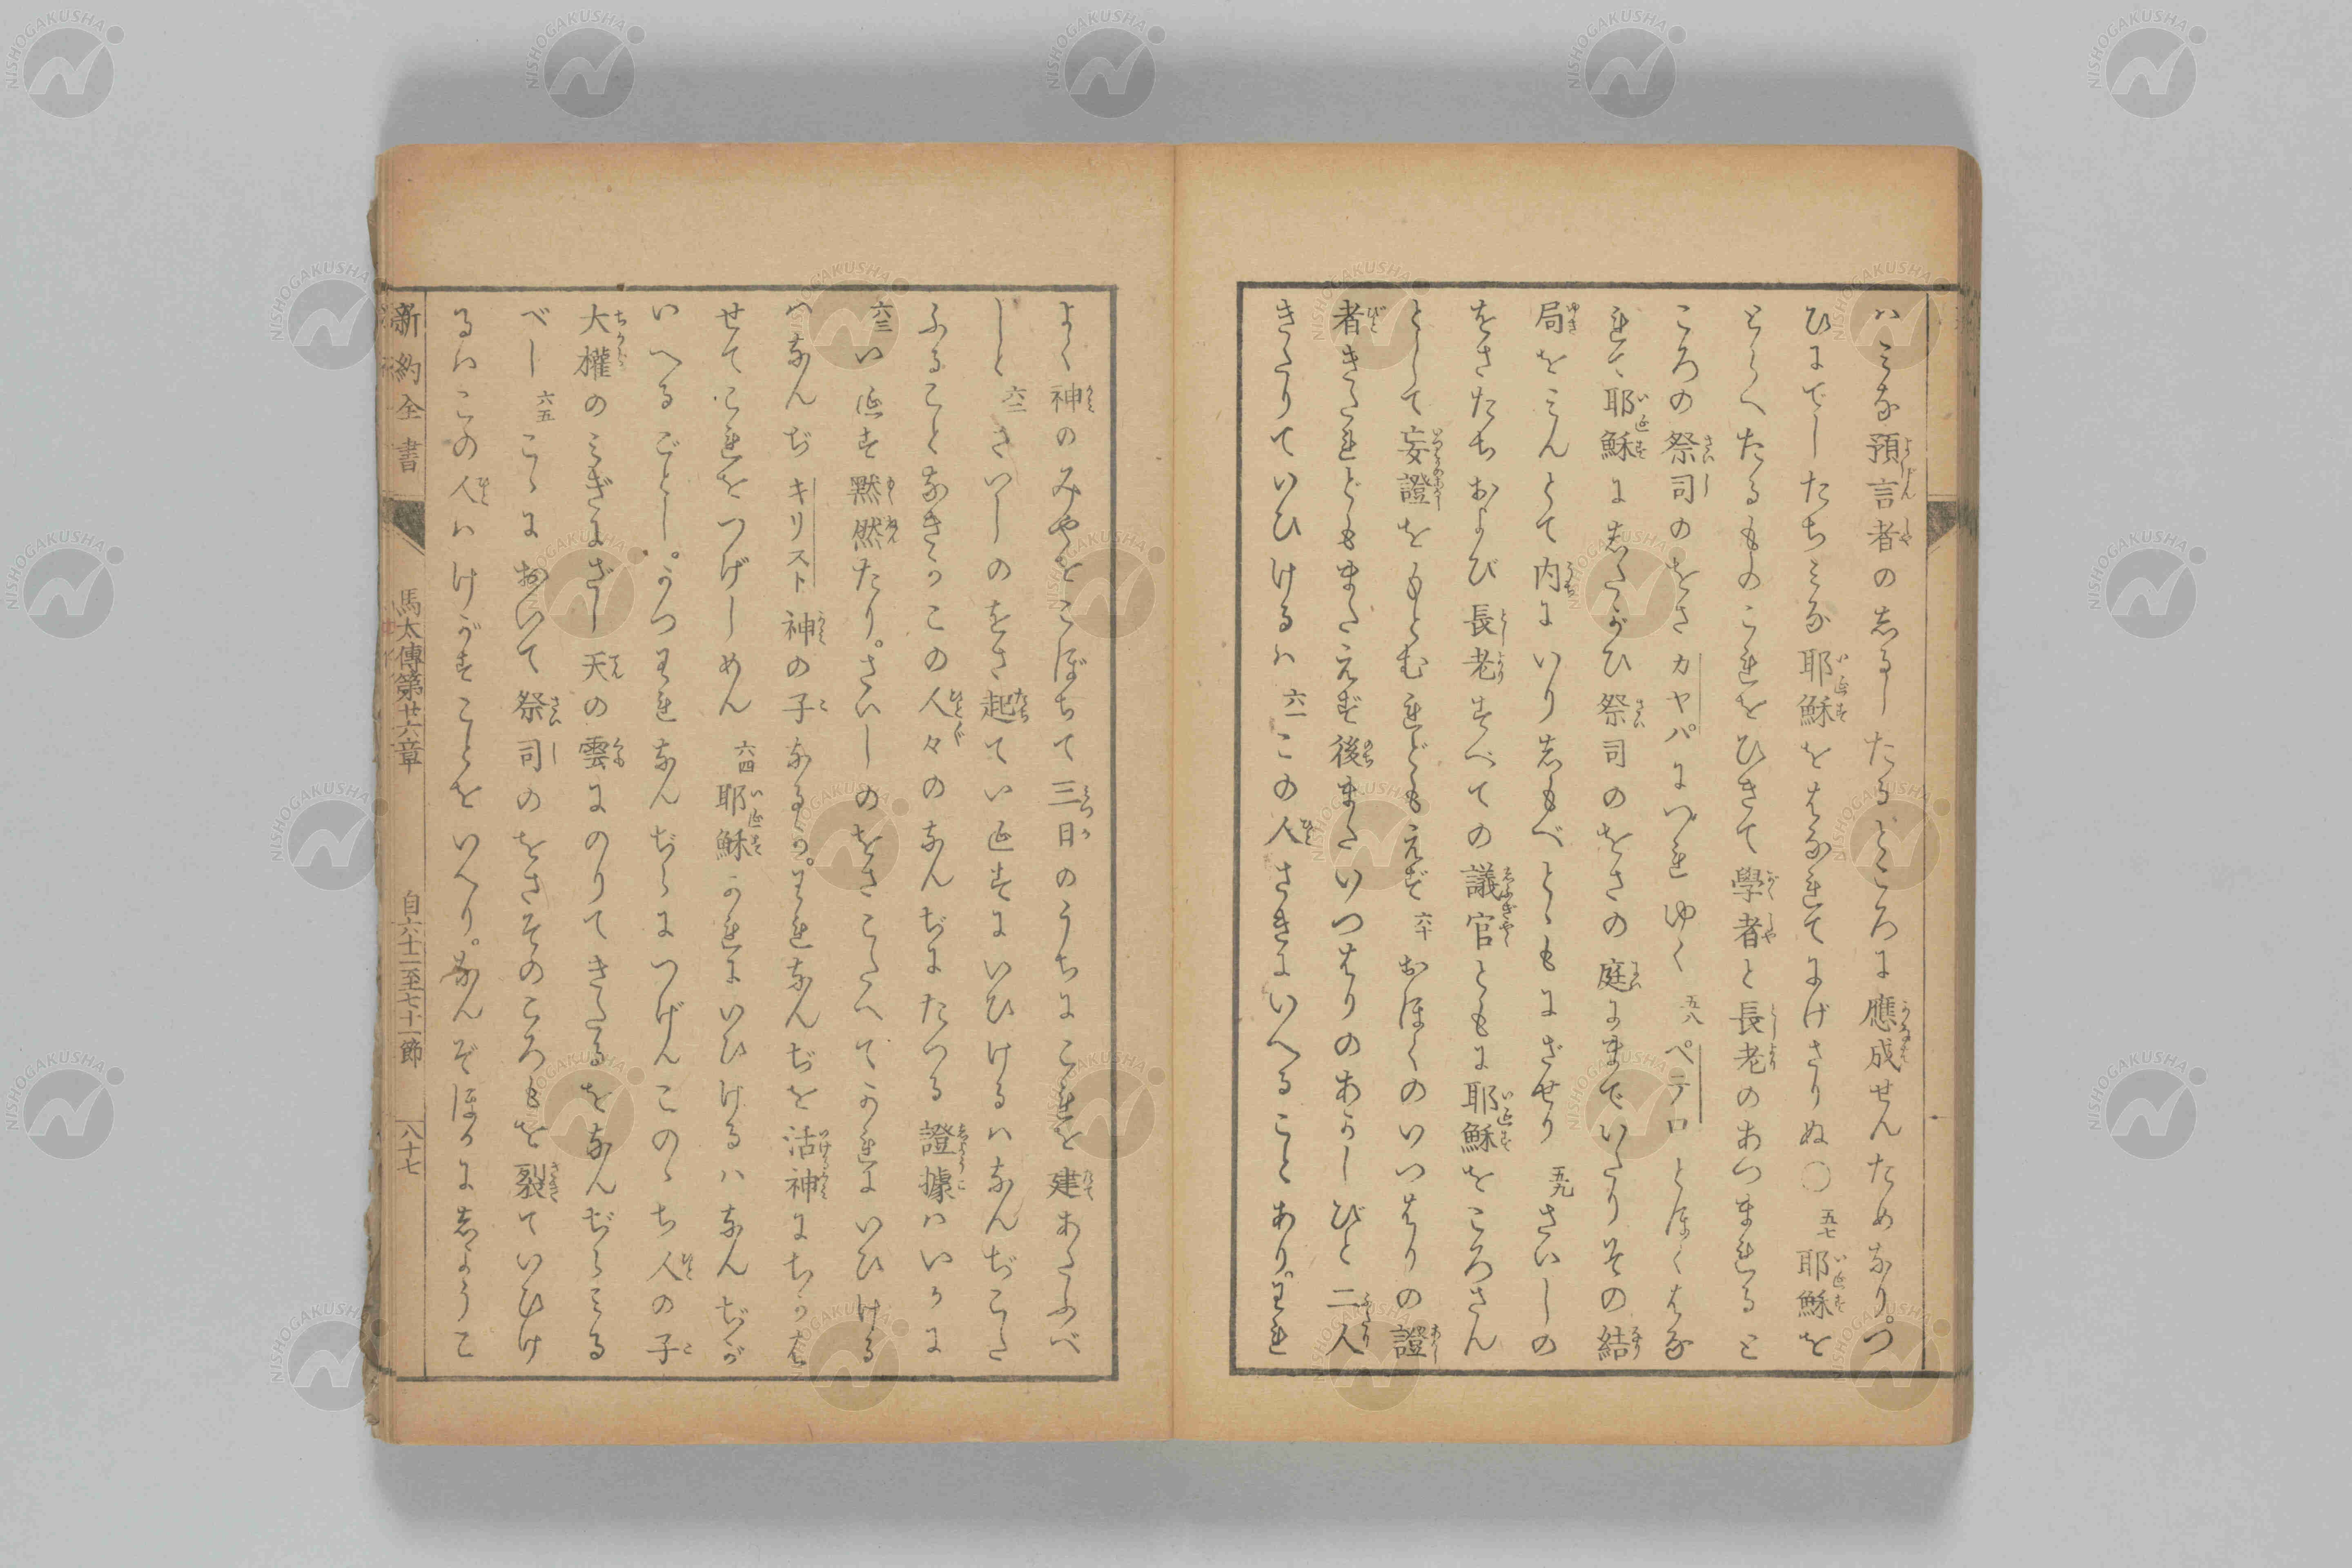 ハみな預言者のしるしたるところに應成せんためなり。つ
ひにでしたちみな耶穌をはなれてにげさりぬ〇五七耶穌を
とらへたるものこれをひきて學者と長老のあつまれると
ころの祭司のをさカヤパにつれゆく五八ペテロとほくはな
れて耶穌にしたがひ祭司のをさの庭にまでいたりその結
局をみんとて内にいりしもべとゝもにざせり五九さいしの
をさたちおよび長老すべての議官ともに耶穌をころさん
として妄證をもとむれどもえず六十おほくのいつはりの證
者きたれどもまたえず後またいつはりのあかしびと二人
きたりていひけるハ六一この人さきにいへることあり。われ
よく神のみやをこぼちて三日のうちにこれを建あたふべ
しと六二さいしのをさ起ていゑすにいひけるハなんぢこた
ふることなきかこの人々のなんぢにたつる證據ハいかに
六三いゑす黙然たり。さいしのをさこたへてかれにいひける
ハなんぢキリスト神の子なるか。われなんぢを活神にちかは
せてこれをつげしめん六四耶穌かれにいひけるハなんぢが
いへるごとし。かつわれなんぢらにつげんこのゝち人の子
大權のみぎにざし天の雲にのりてきたるをなんぢらみる
べし六五こゝにおいて祭司のをさそのころもを裂ていひけ
るハこの人ハけがすことをいへり。なんぞほかにしようこ
新約全書 馬太傳第廿六章 自六十二至七十一節 八十七
NISHOGAKUSHA